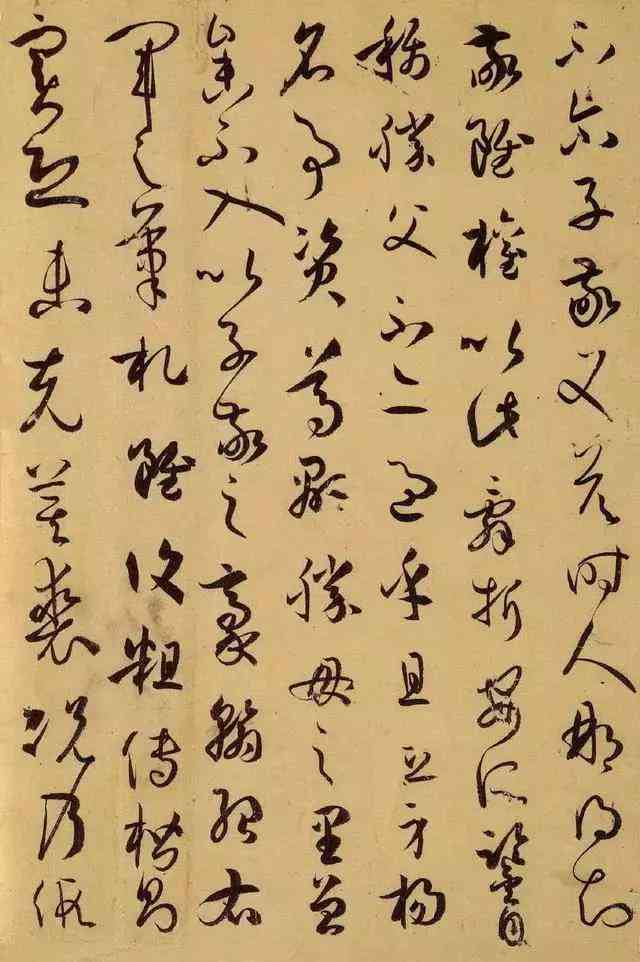 不爾子敬又答時人那得知
敬雖權以此辭折安所鑒自
稱勝父不亦過乎且立身揚
名事資尊顯勝母之里曾
參不入以子敬之豪翰紹右
軍之筆札雖復粗傳楷則
實恐未克箕裘況乃假